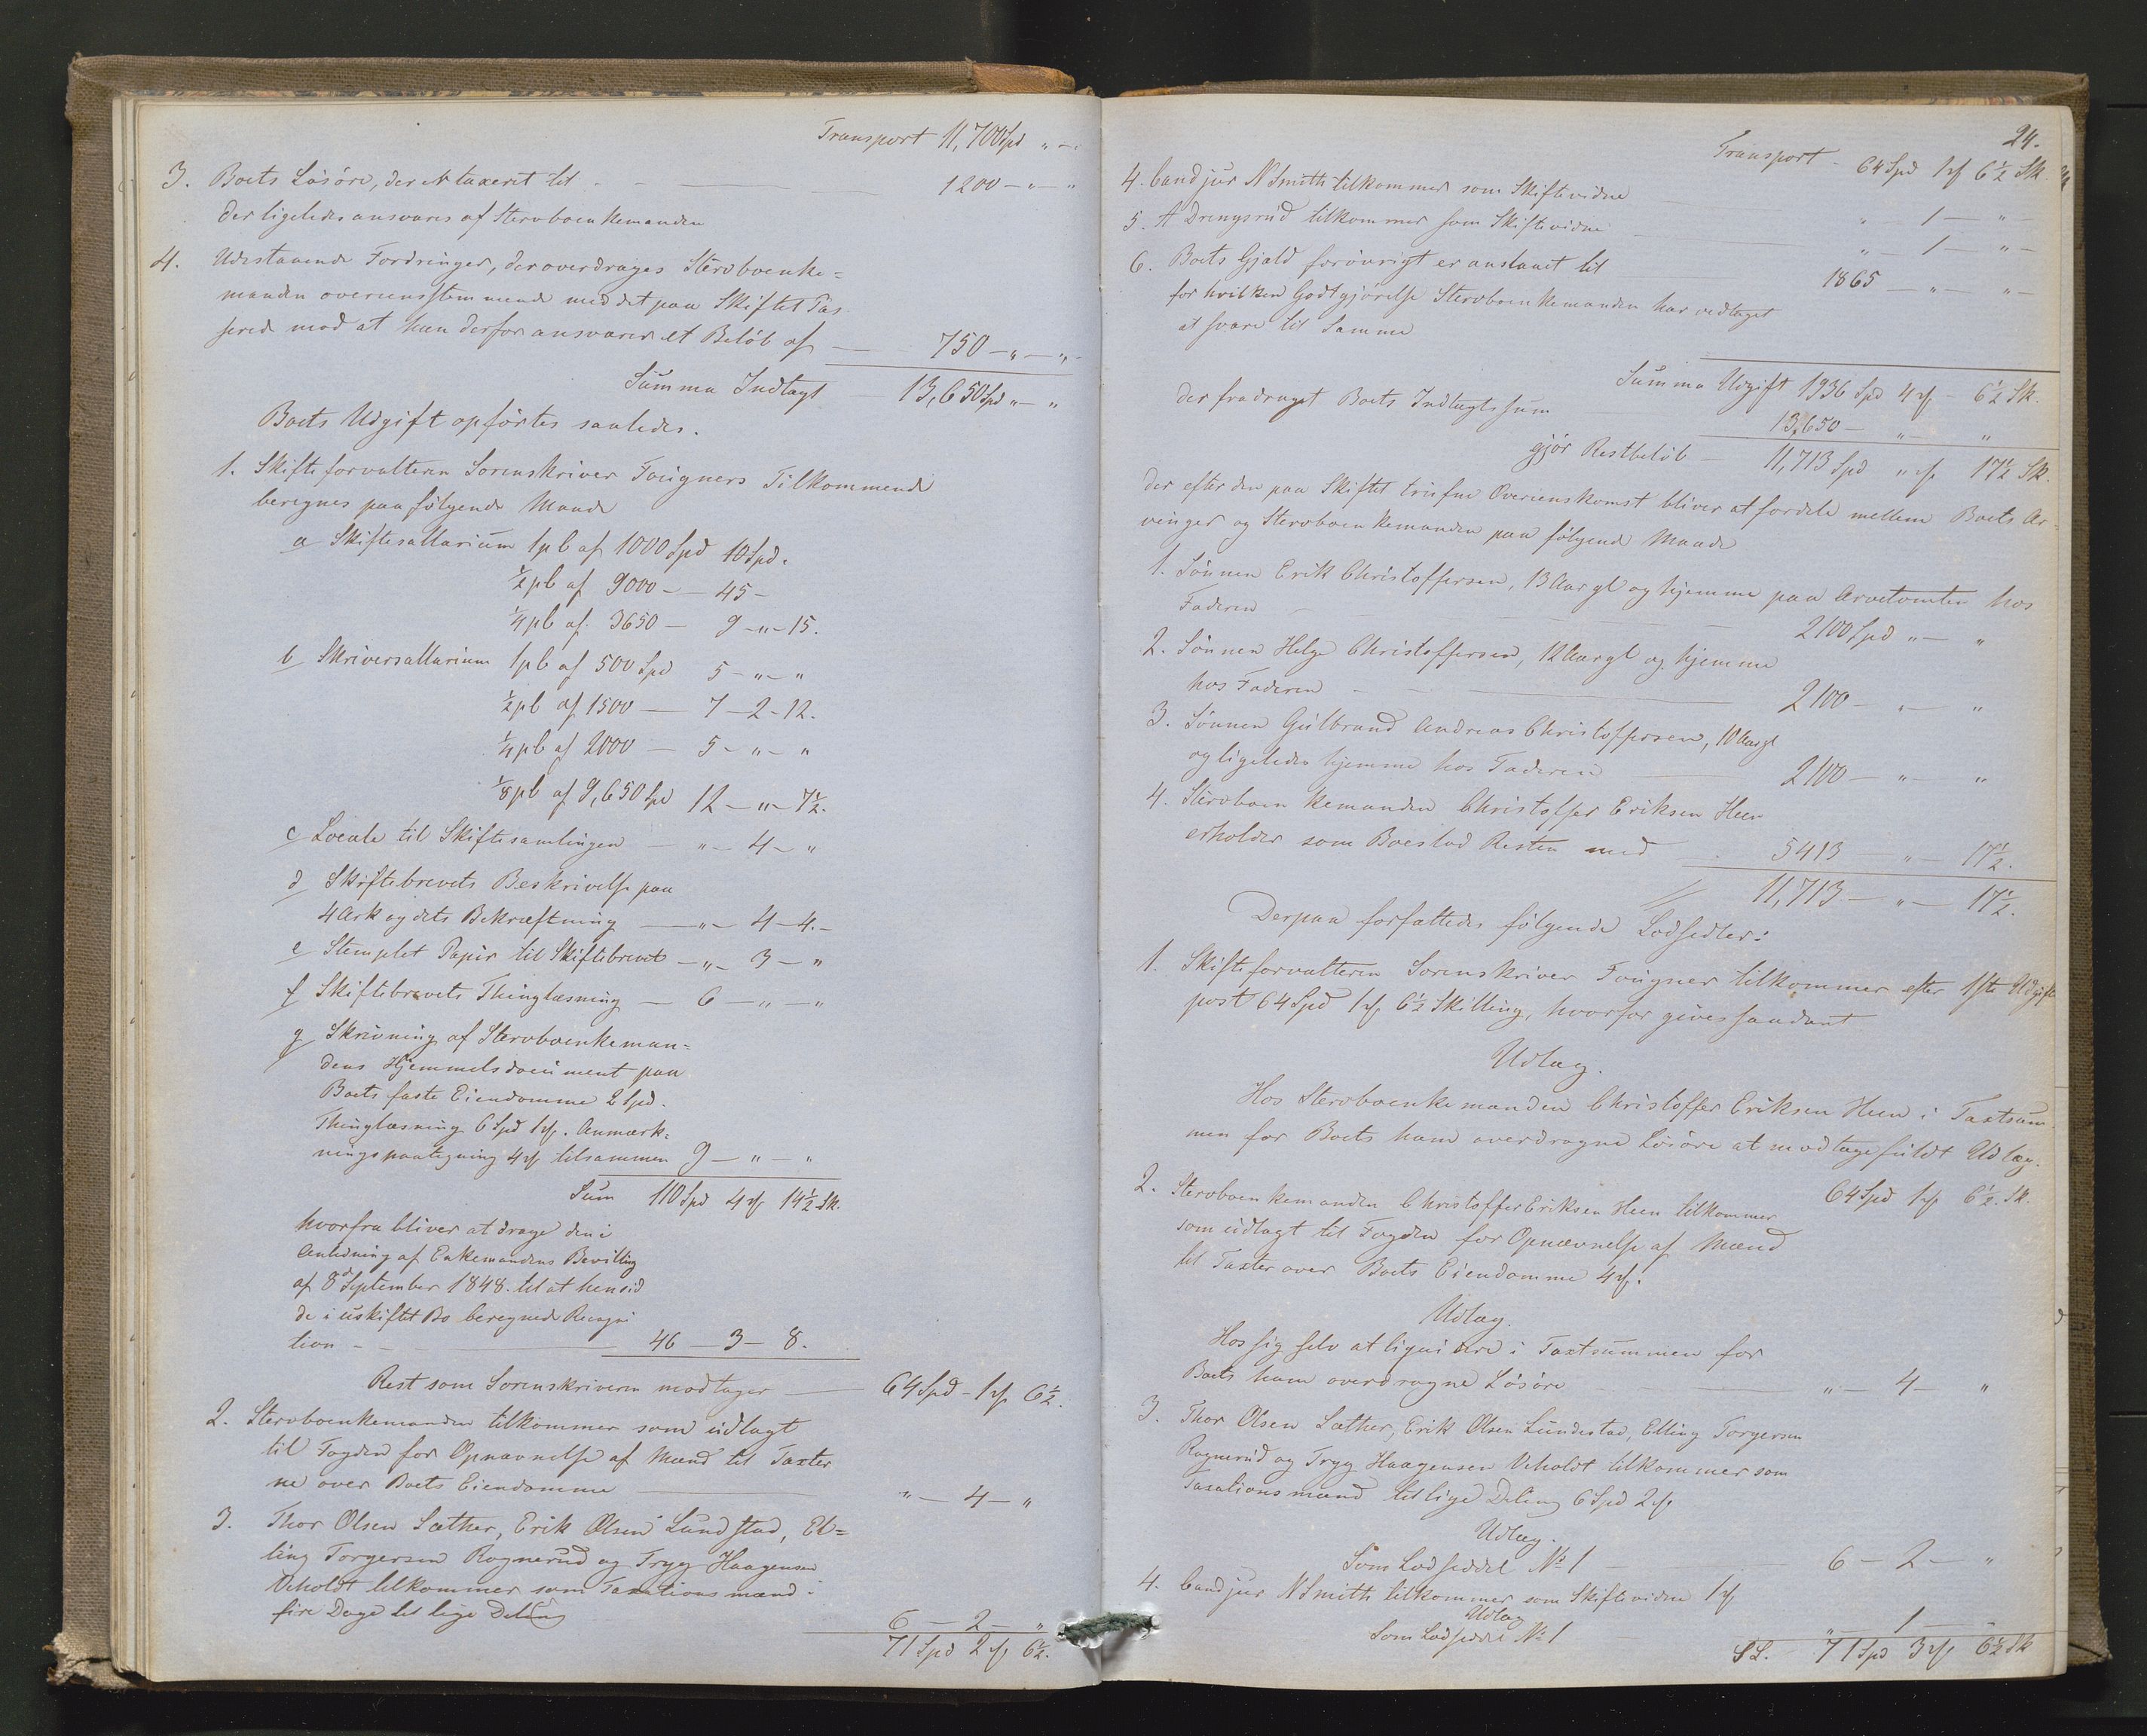 Transport 11,700 Spd " — "
3. Boets Løsøre, der er taxeret til — 1200 — " — "
der ligeledes ansvares af Stervboenkemanden
4. Udestaaende Fordringer, der overdrages Stervboenke=
manden overeensstemmende med det paa Skiftet Pas
serede mod at han derfor ansvarer et Beløb af — 750 — " — "
Summa Indtægt — 13,650 Spd " — "
Boets Udgift opførtes saaledes.
1. Skifteforvalteren Sorenskriver Fougners Tilkommende
beregnes paa følgende Maade
a Skiftesallarium 1 pC af 1000 Spd 10 Spd.
½ pC af 9000 — 45 —
¼ pC af 3650 — 9 — " — 15.
b Skriversallarium 1 pC af 500 Spd 5 — " — "
½ pC af 1500 — 7 — 2 — 12.
¼ pC af 2000 — 5 — " — "
⅛ pC af 9,650 Spd 12 — " — 7½.
c Locale til Skiftesamlingen — " — 4 — "
d Skiftebrevets Beskrivelse paa
4 Ark og dets Bekræftning — " — 4 — 4. —
e Stemplet Papir til Skiftebrevet — " — 3 — "
f Skiftebrevets Thinglæsning — 6 — " — "
g Skrivning af Stervboenkeman=
dens Hjemmelsdocument paa
Boets faste Eiendomme 2 Spd.
Thinglæsning 6 Spd 1 ₰. Anmærk=
ningspaategning 4 ₰ tilsammen 9 — " — "
Sum 110 Spd 4 ₰ 14½ Sk.
hvorfra bliver at drage den i
Anledning af Enkemandens Bevilling
af 8de September 1848. til at hensid
de i uskiftet Bo beregnede Recogni
tion — 46 — 3 — 8.
Rest som Sorenskriveren modtager — 64 Spd — 1 ₰ 6½.
2. Stervboenkemanden tilkommer som udlagt
til Fogden for Opnævnelse af Mænd til Taxter
ne over Boets Eiendomme — " — 4 — "
3. Thor Olsen Sæther, Erik Olsen Lundstad, El=
ling Torgersen Rognerud og Tryg Haagensen
Veholdt tilkommer som Taxationsmænd i
fire Dage til lige Deling 6 — 2 — "
71 Spd 2 ₰ 6½.
24.
Transport — 64 Spd 1 ₰ 6½ Sk
4. Cand jur N Smith tilkommer som Skiftevidne — " 1 — "
5. A Drengsrud tilkommer som Skiftevidne — " — 1 — " —
6. Boets Gjæld forøvrigt er anslaaet til 1865 — " — " —
for hvilken Godtgjørelse Stervboenkemanden har vedtaget
at svare til Samme
Summa Udgift 1936 Spd 4 ₰ — 6½ Sk.
der fradraget Boets Indtægtssum 13,650 — " — "
gjør Restbeløb — 11,713 Spd " ₰ 17½ Sk.
der efter den paa Skiftet trufne Overeenskomst bliver at fordele mellem Boets Ar=
vinger og Stervboenkemanden paa følgende Maade
1. Sønnen Erik Christoffersen, 13 Aar gl og hjemme paa Arvetomten hos
Faderen — 2100 Spd " — "
2. Sønnen Helge Christoffersen, 12 Aar gl og hjemme
hos Faderen — 2100 — " — "
3. Sønnen Gulbrand Andreas Christoffersen, 10 Aar gl
og ligeledes hjemme hos Faderen — 2100 — " — "
4. Stervboenkemanden Christoffer Eriksen Heen
erholder som Boeslod Resten med 5413 — " — 17½.
11,713 — " — 17½.
Derpaa forfattedes følgende Lodsedler:
1. Skifteforvalteren Sorenskriver Fougner tilkommer efter 1ste Udgifts
post 64 Spd 1 ₰ 6½ Skilling, hvorfor gives saadant
Udlæg.
Hos Stervboenkemanden Christoffer Eriksen Heen i Taxtsum
men for Boets ham overdragne Løsøre at modtage fuldt Udlæg.
64 Spd 1 ₰ 6½. Sk.
2. Stervboenkemanden Christoffer Eriksen Heen tilkommer
som udlagt til Fogden for Opnævnelse af Mænd
til Taxter over Boets Eiendomme 4 ₰.
Udlæg.
Hos sig selv at liqvidere i Taxtsummen for
Boets ham overdragne Løsøre — " — 4 — "
3. Thor Olsen Sæther, Erik Olsen Lundestad, Elling Torgersen
Rognerud og Tryg Haagensen Veholdt tilkommer som
Taxationsmænd til lige Deling 6 Spd 2 ₰
Udlæg.
Som Lodseddel No 1 — 6 — 2 — "
4. Cand jur N Smith tilkommer som Skiftevidne 1 ₰
Udlæg
Som Lodseddel No 1 " — 1 —
S L. 71 Spd 3 ₰ 6½ Sk